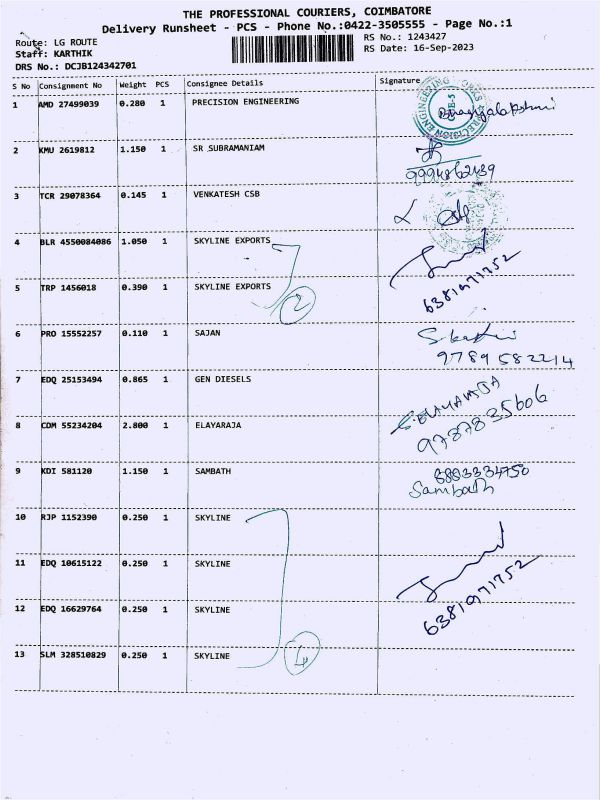 THE PROFESSIONAL COURIERS, COIMBATORE
Delivery Runsheet - PCS - Phone No.:0422-3505555 - Page No.:1
Route: LG ROUTE
RS No.: 1243427
Staff: KARTHIK
RS Date: 16-Sep-2023
DRS No.: DCJB124342701
S No Consignment No Weight PCS Consignee Details Signature
1 AMD 27499039 0.280 1 PRECISION ENGINEERING
2 KMU 2619812 1.150 1 SR SUBRAMANIAM
9994862439
3 TCR 29078364 0.145 1 VENKATESH CSB
4 BLR 4550084086 1.050 1 SKYLINE EXPORTS
5 TRP 1456018 0.390 1 SKYLINE EXPORTS
2
6381971752
6 PRO 15552257 0.110 1 SAJAN
9789582214
7 EDQ 25153494 0.865 1 GEN DIESELS
8 CDM 55234204 2.800 1 ELAYARAJA
9787835606
9 KDI 581120 1.150 1 SAMBATH
Sambath
10 RJP 1152390 0.250 1 SKYLINE
11 EDQ 10615122 0.250 1 SKYLINE
12 EDQ 16629764 0.250 1 SKYLINE
6381971752
13 SLM 328510829 0.250 1 SKYLINE
4